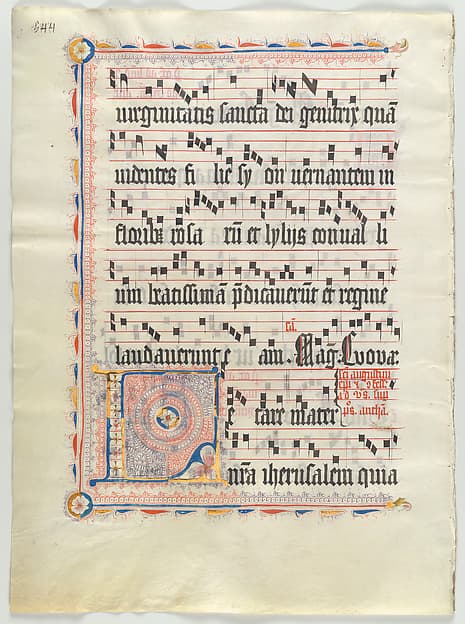 uirginitatis sancta dei genitrix quā
uidentes fi lie sy on uernantem in
floribꝰ rosa rū et lylijs conual li
um beatissimā p̄dicauerūt et regine
laudauerunt e am. Mag. Euouae
Le tare mater
nr̄a iherusalem quia